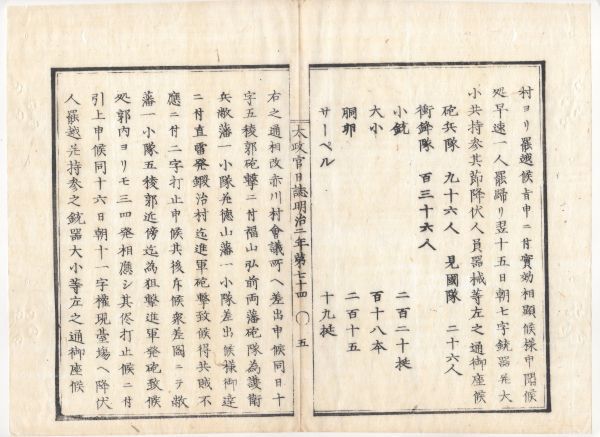 村ヨリ罷越候者申ニ付實効相顕候様申聞候
処早速一人罷帰リ翌十五日朝七字銃器并大
小共持参其節降伏人員器械等左之通御座候
砲兵隊 九十六人 見國隊 二十六人
衝鋒隊 百三十六人
小銃 二百二十挺
大小 百十八本
胴卵 二百十五
サーベル 十九挺
太政官日誌明治二年第七十四 〇 五
右之通相改赤川村會議所ヘ差出申候同日十
字五稜郭砲撃ニ付福山弘前両藩砲隊為護衛
兵敝藩一小隊并徳山藩一小隊差出候様御達
ニ付直雷発鍛治村迄進軍砲撃致候得共賊不
應ニ付二字打止申候其後斥候衆差圖ニテ敝
藩一小隊五稜郭近傍迄為狙撃進軍発砲致候
処郭内ヨリモ三四発相應シ其侭打止候ニ付
引上申候同十六日朝十一字權現臺場ヘ降伏
人罷越并持参之銃器大小等左之通御座候